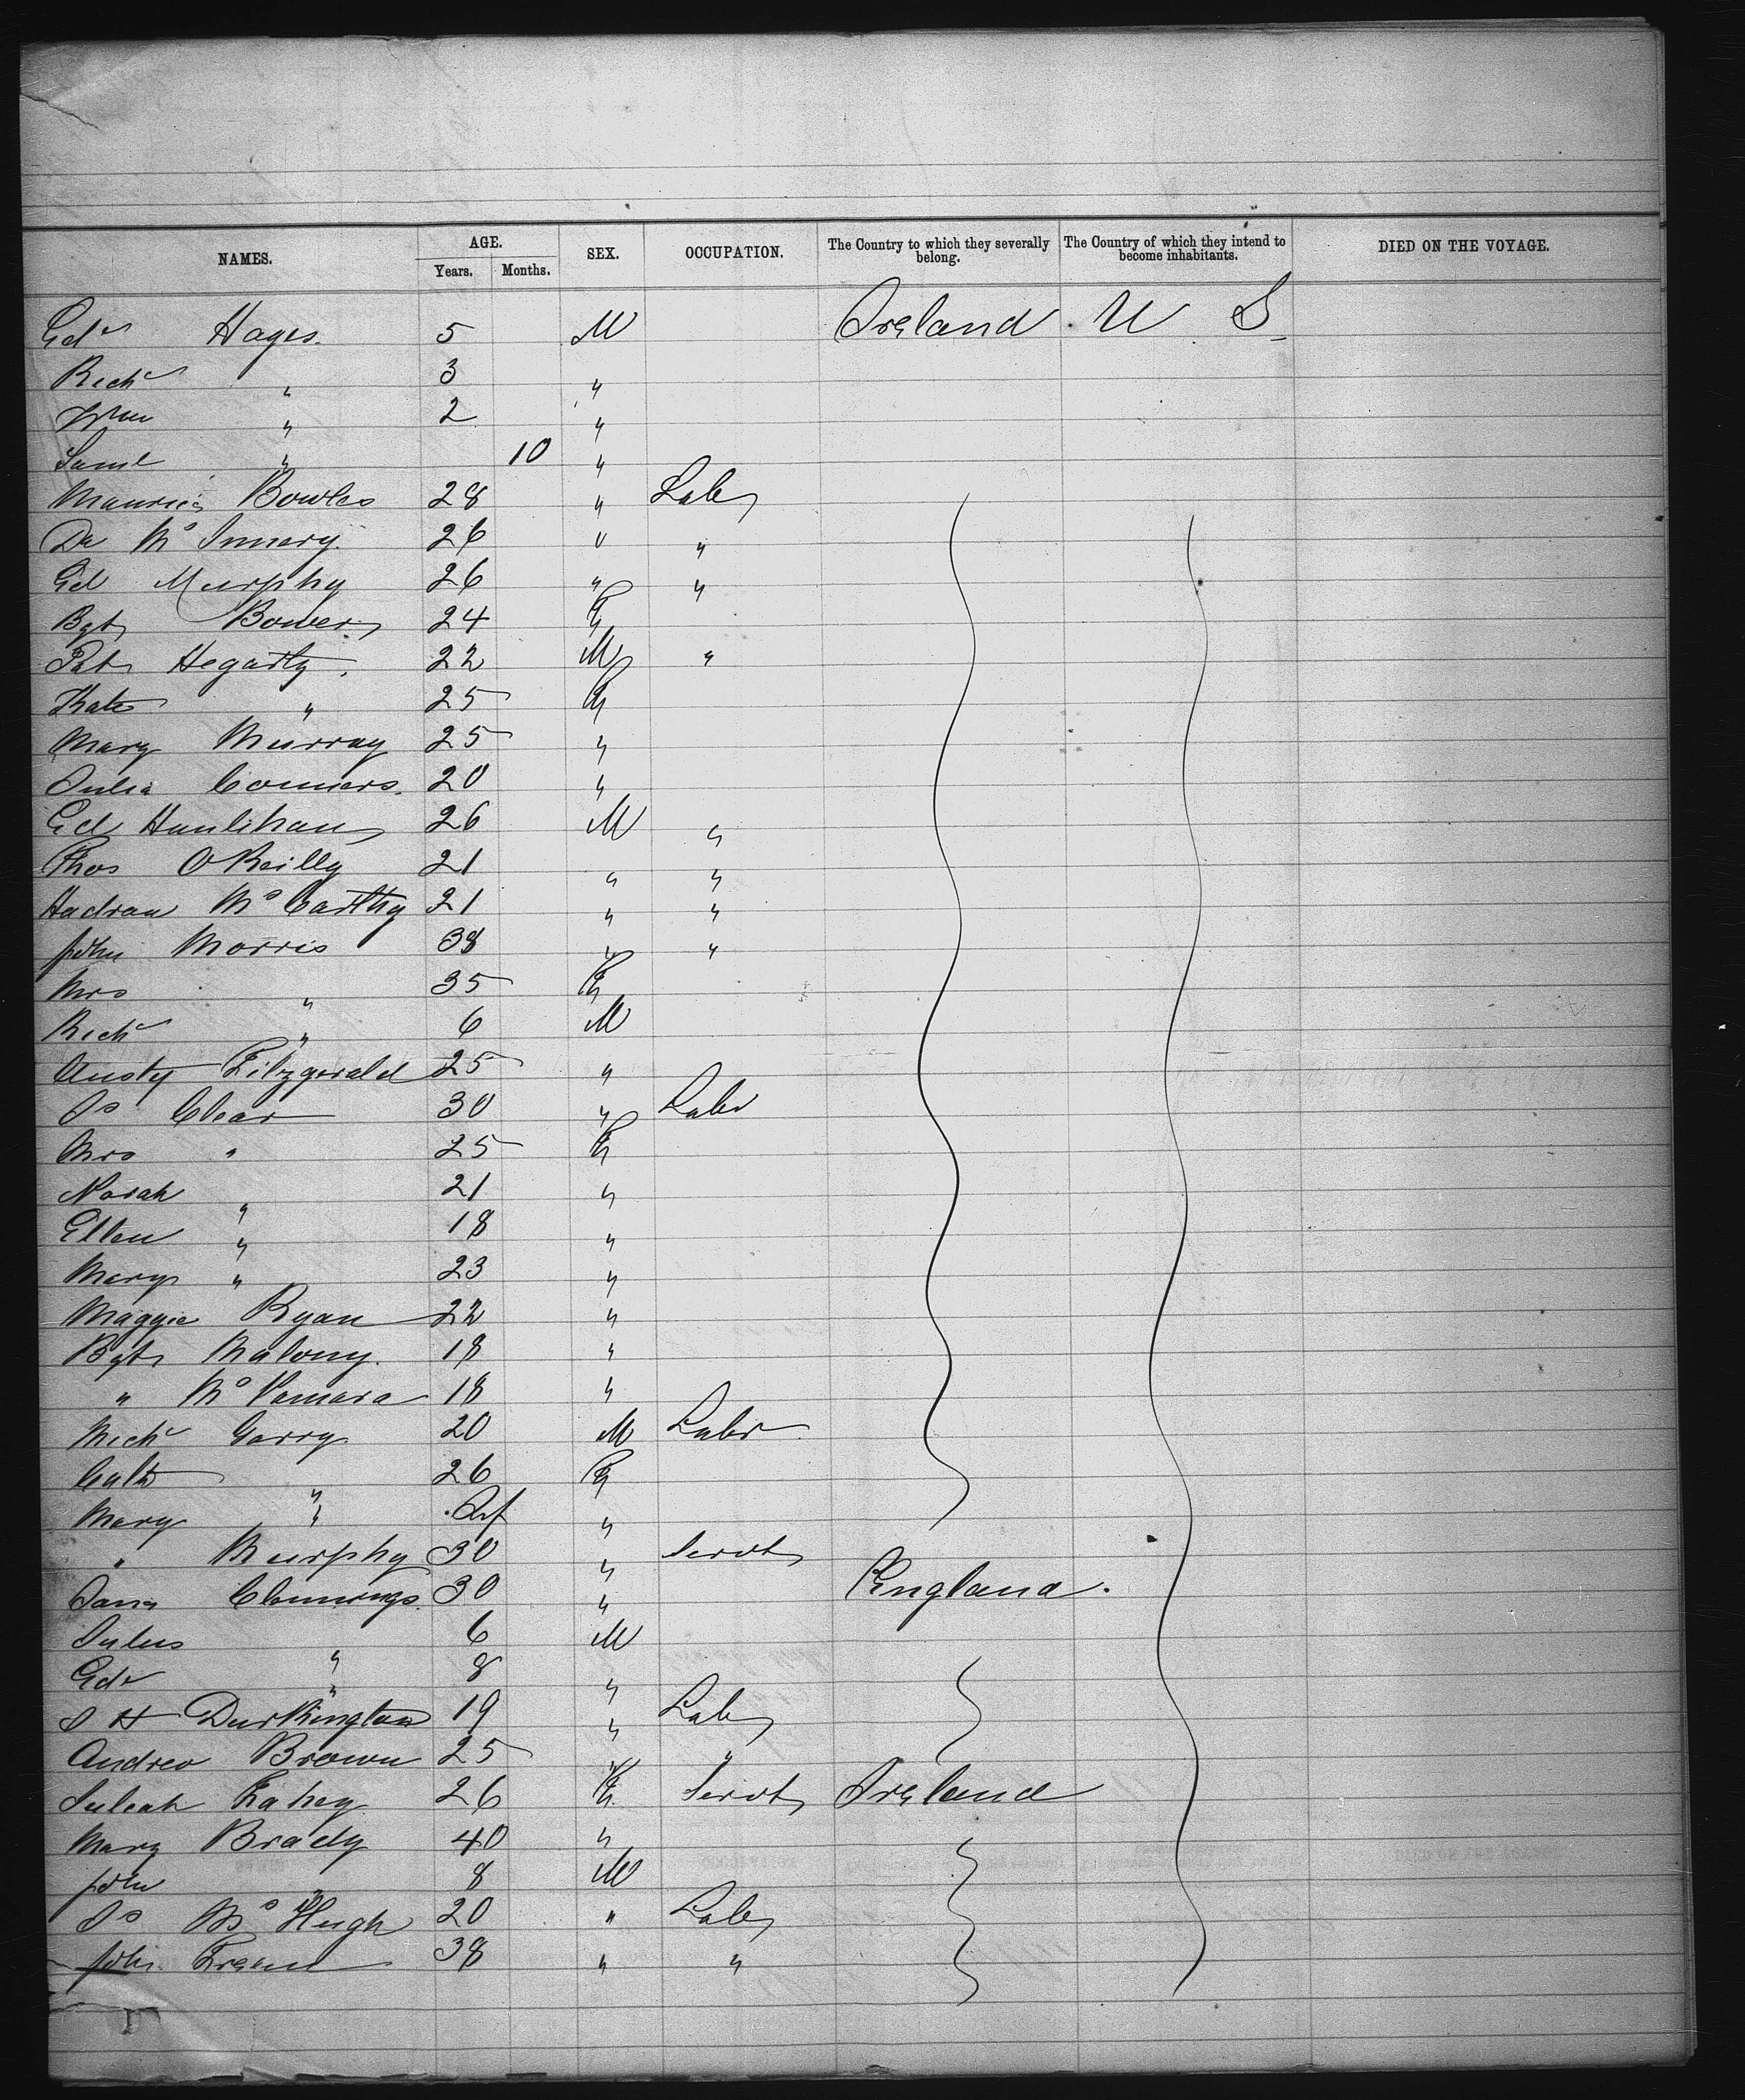 NAMES. AGE. Years. Months. SEX. OCCUPATION. The Country to which they severally belong. The Country of which they intend to become inhabitants. DIED ON THE VOYAGE.
Edw Hayes 5 M Ireland U S
Richd " 3 "
Wm " 2 "
Saml " 10 "
Maurice Bowles 28 " Labr
Da McInnery 26 " "
Ed Murphy 26 " "
Bgt Bower 24 F
Pat Hegarty 22 M "
Kate " 25 F
Mary Murray 25 "
Julia Conners 20 "
Ed Hanlihan 26 M "
Thos O'Reilly 21 " "
Hadran McCarthy 21 " "
John Morris 38 " "
Mrs " 35 F
Richd " 6 M
Austy Fitzgerald 25 "
Js Clear 30 " Labr
Mrs " 25 F
Norah " 21 "
Ellen " 18 "
Mary " 23 "
Maggie Ryan 22 "
Bgt Malony 18 "
" McNamara 18 "
Michl Garry 20 M Labr
Cath " 26 F
Mary " Inf "
" Murphy 30 " Servt
Jane Clemmings 30 " England
Julus 6 M
Edw " 8 "
J H Durkington 19 " Labr
Andrew Brown 25 " "
Juliah Fahey 26 F Servt Ireland
Mary Brady 40 "
John " 8 M
Js McHugh 20 " Labr
John 38 " "